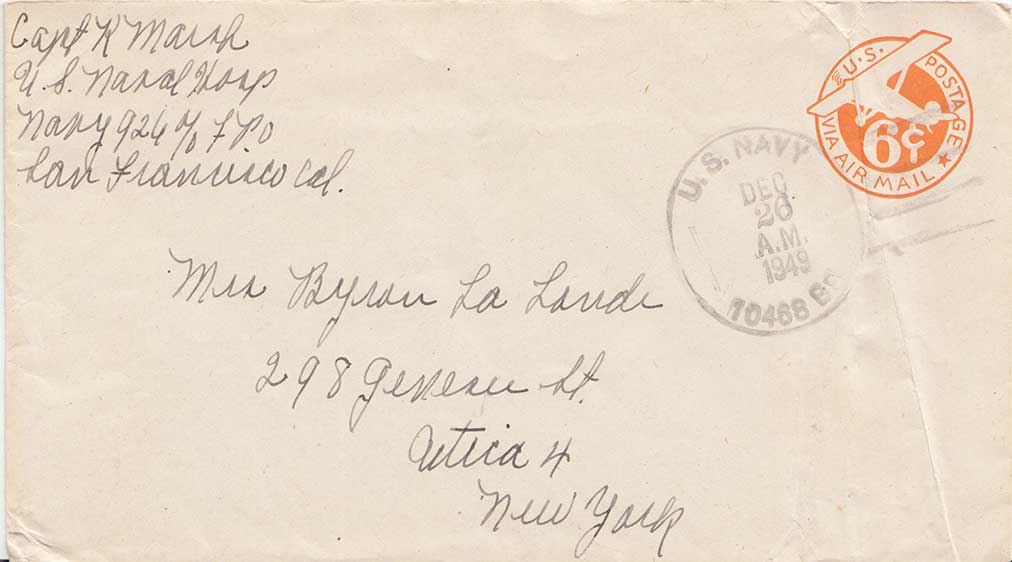 Capt K Marsh
U. S. Naval Hosp
Navy 926 c/o F P O
San Francisco Cal.
U.S. POSTAGE
VIA AIR MAIL
6¢
U. S. NAVY
DEC
26
A.M.
1949
10468 BR
Mrs Byron La Londe
298 Genesee St.
Utica 4
New York